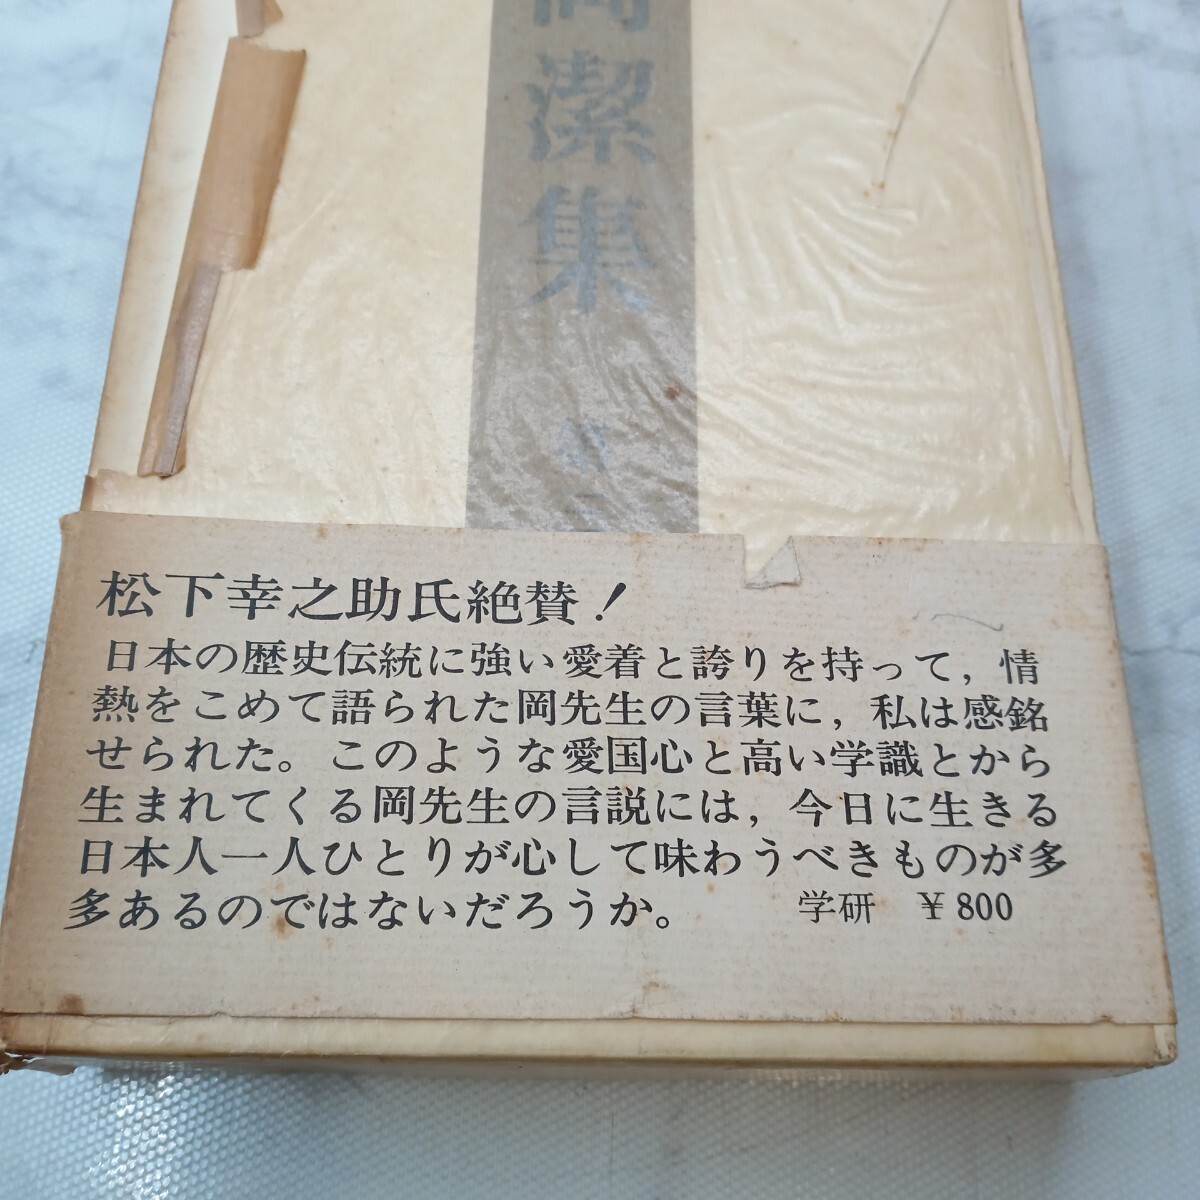 岡潔集
松下幸之助氏絶賛！
日本の歴史伝統に強い愛着と誇りを持って，情
熱をこめて語られた岡先生の言葉に，私は感銘
せられた。このような愛国心と高い学識とから
生まれてくる岡先生の言説には，今日に生きる
日本人一人ひとりが心して味わうべきものが多
多あるのではないだろうか。
学研　￥800